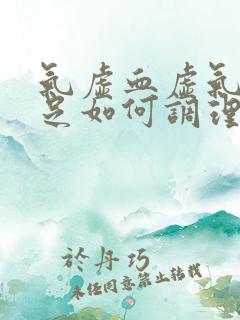 氣虛血虛氣
足如何調理
於丹巧
未經同意禁止轉載